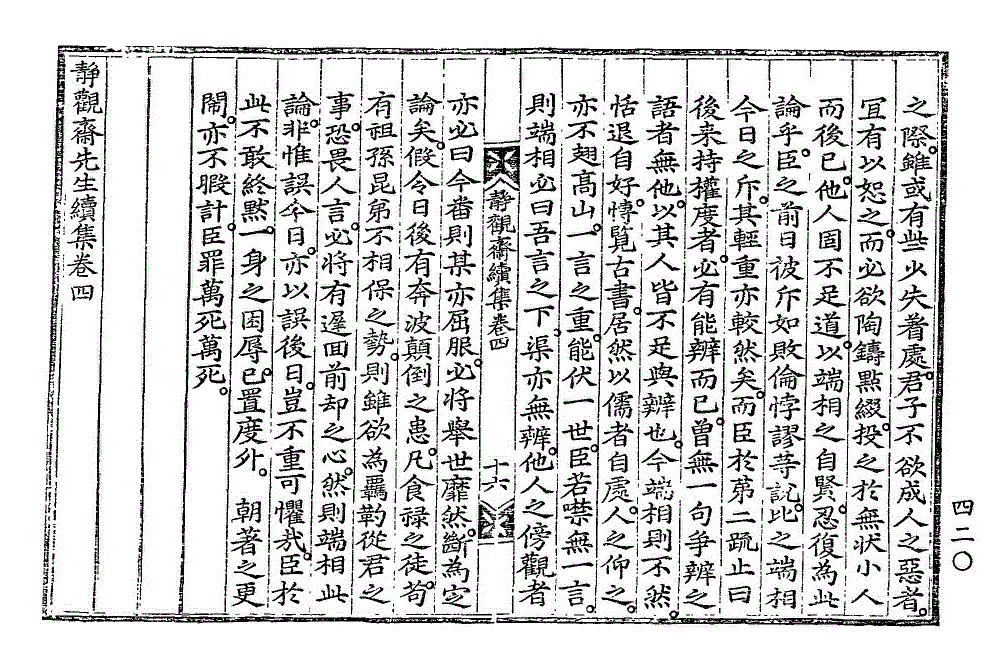 之際。雖或有些少失着處。君子不欲成人之惡者。
宜有以恕之。而必欲陶鑄點綴。投之於無狀小人
而後已。他人固不足道。以端相之自賢。忍復為此
論乎。臣之前日被斥如敗倫悖謬等說。比之端相
今日之斥。其輕重亦較然矣。而臣於第二疏止曰
後来持權度者。必有能辨而已。曾無一句爭辨之
語者無他。以其人皆不足與辨也。今端相則不然。
恬退自好。慱覽古書。居然以儒者自處。人之仰之。
亦不翅高山。一言之重。能伏一世。臣若噤無一言。
則端相必曰吾言之下。渠亦無辨。他人之傍觀者
靜觀齋續集卷四
十六
亦必曰今番則某亦屈服。必将舉世靡然。斷為定
論矣。假令日後有奔波顛倒之患。凡食祿之徒。苟
有祖孫昆弟不相保之勢。則雖欲為羈靮從君之
事。恐畏人言。必將有遲回前却之心。然則端相此
論。非惟誤今日。亦以誤後日。豈不重可懼哉。臣於
此不敢終默。一身之困辱。已置度外。 朝著之更
鬧。亦不暇計。臣罪萬死萬死。
靜觀齋先生續集卷四
四二〇